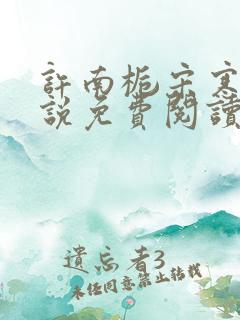 許南梔宋寒
說免費閱讀
遺忘者3
未经同意禁止转载